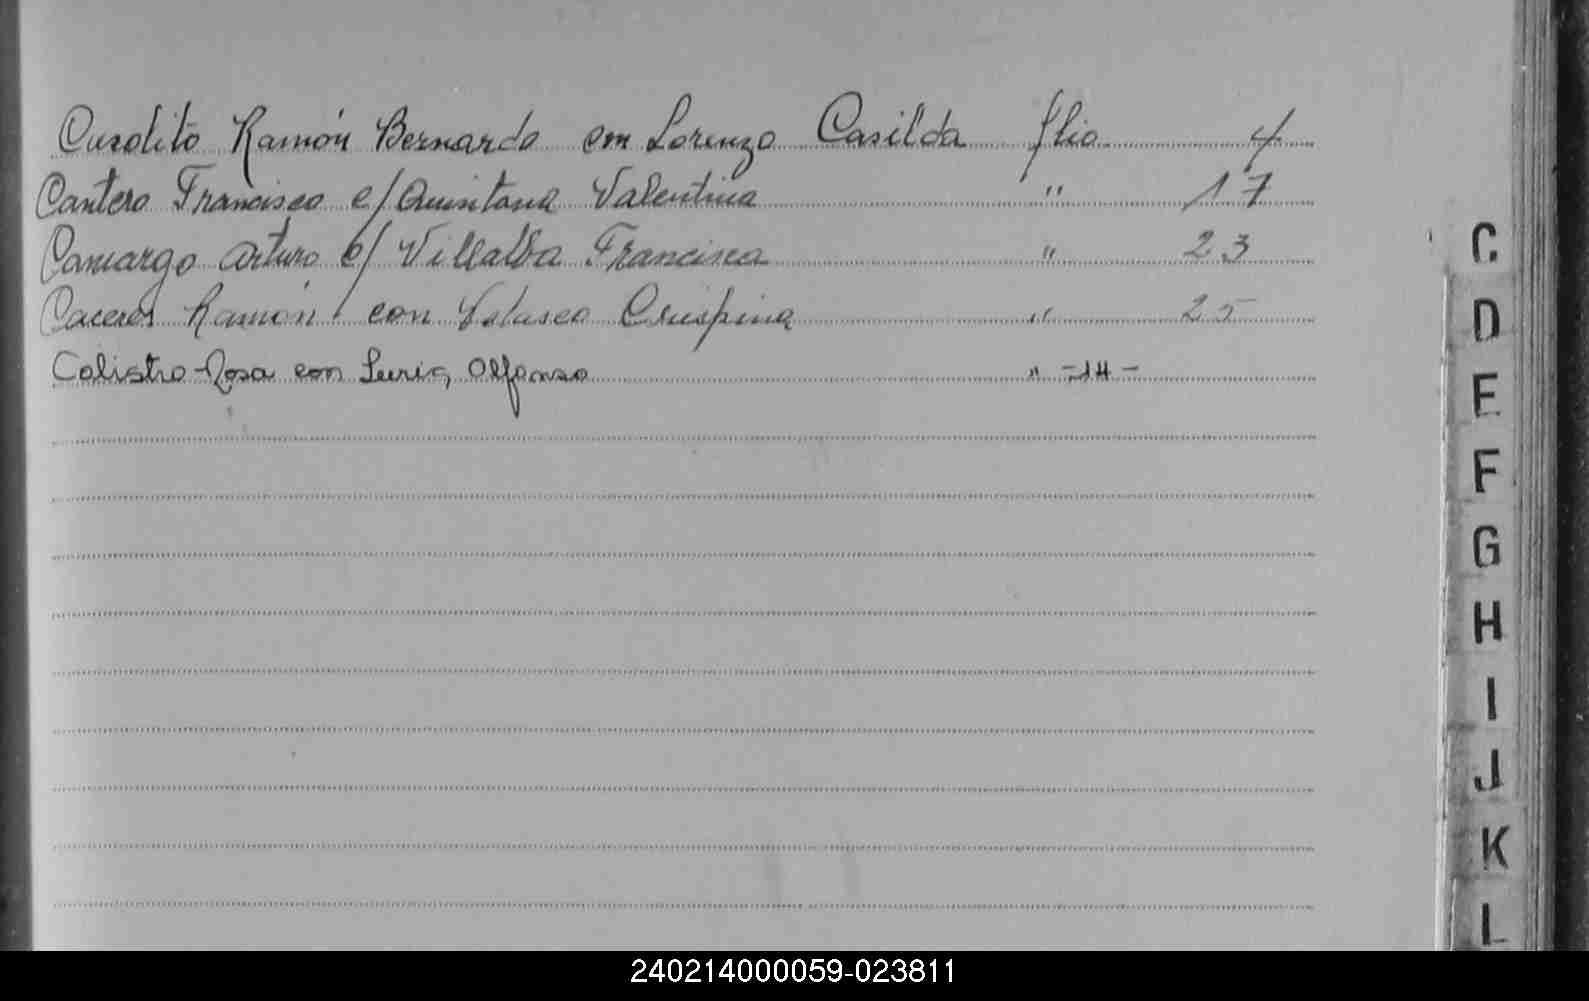 Curolito Ramón Bernardo con Lorenzo Casilda flio 4
Cantero Francisco c/ Quintana Valentina " 17
Camargo Arturo c/ Villalba Francisca " 23
Caceres Ramón con Velasco Crispina " 25
Calistro Rosa con Alfonso " -14-
C
D
E
F
G
H
I
J
K
L
240214000059-023811